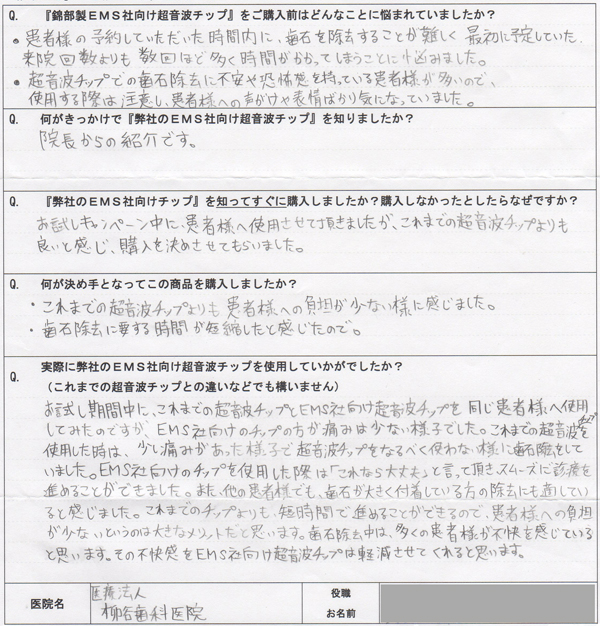 Q. 『錦部製EMS社向け超音波チップ』をご購入前はどんなことに悩まれていましたか?
• 患者様の予約していただいた時間内に、歯石を除去することが難しく 最初に予定していた
来院回数よりも 数回ほど多く時間がかかってしまうことに悩みました。
• 超音波チップでの歯石除去に不安や恐怖感を持っている患者様が多いので、
使用する際は注意し、患者様への声がけや表情ばかり気になっていました。
Q. 何がきっかけで『弊社のEMS社向け超音波チップ』を知りましたか?
院長からの紹介です。
Q. 『弊社のEMS社向けチップ』を知ってすぐに購入しましたか?購入しなかったとしたらなぜですか?
お試しキャンペーン中に、患者様へ使用させて頂きましたが、これまでの超音波チップよりも
良いと感じ、購入を決めさせてもらいました。
Q. 何が決め手となってこの商品を購入しましたか?
・これまでの超音波チップよりも 患者様への負担が少ない様に感じました。
・歯石除去に要する時間が短縮したと感じたので。
Q. 実際に弊社のEMS社向け超音波チップを使用していかがでしたか?
(これまでの超音波チップとの違いなどでも構いません)
お試し期間中に、これまでの超音波チップとEMS社向け超音波チップを 同じ患者様へ使用
してみたのですが、EMS社向けのチップの方が痛みは少ない様子でした。これまでの超音波チップを
使用した時は、少し痛みがあった様子で超音波チップをなるべく使わない様に歯石除去をして
いました。EMS社向けのチップを使用した際は「これなら大丈夫」と言って頂き、スムーズに診療を
進めることができました。また、他の患者様でも、歯石が大きく付着している方の除去にも適してい
ると感じました。これまでのチップよりも、短時間で進めることができるので、患者様への負担
が少ないというのは大きなメリットだと思います。歯石除去中は、多くの患者様が不快を感じている
と思います。その不快感をEMS社向け超音波チップは軽減させてくれると思います。
医院名 医療法人
柳谷歯科医院
役職
お名前